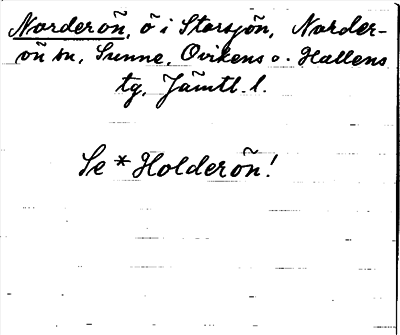 Norderön, ö i Storsjön, Norder-
ön sn, Sunne, Ovikens o. Hallens
tg, Jämtl. l.
Se *Holderön!